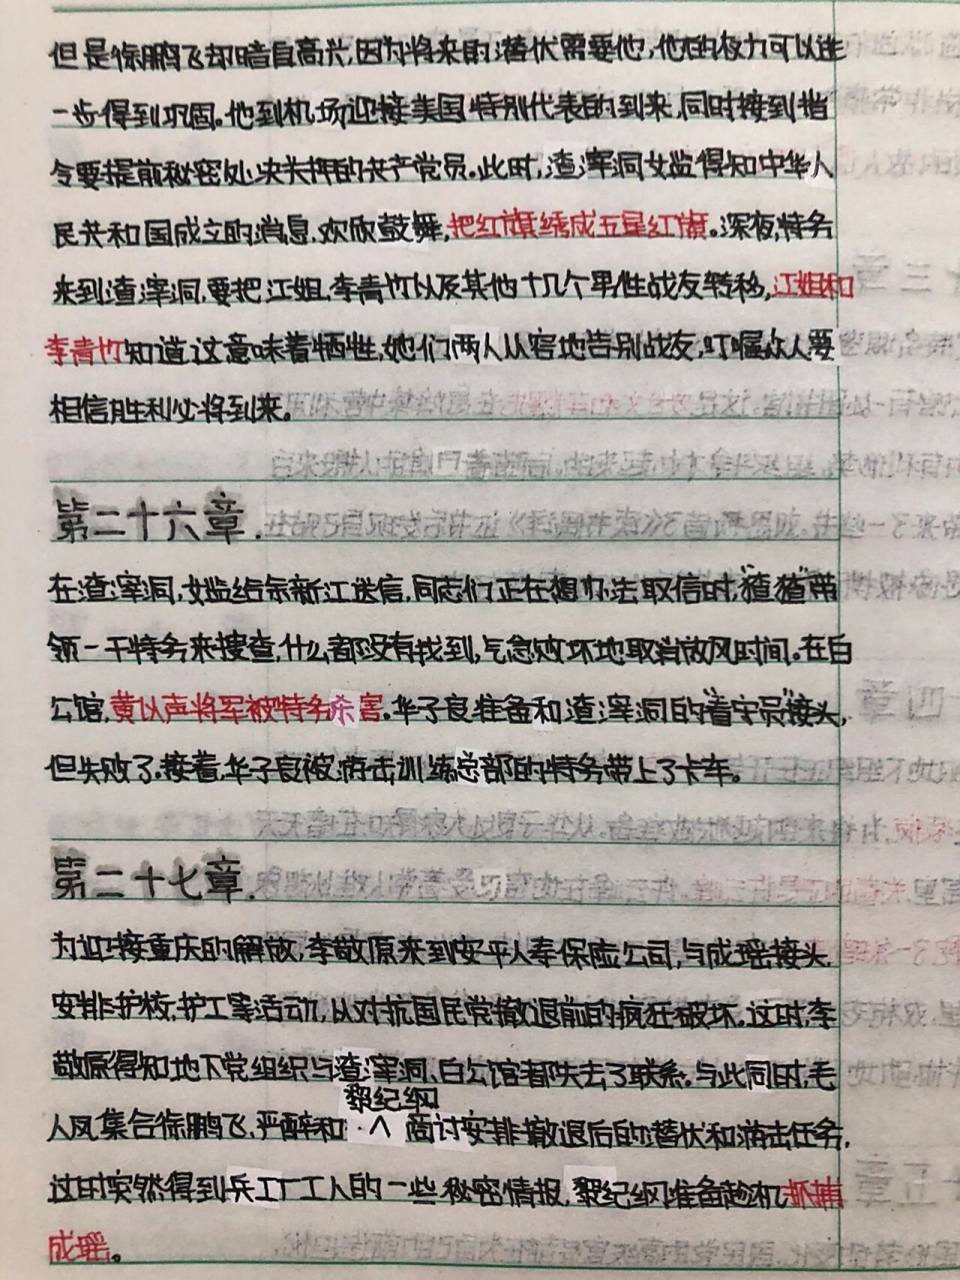 但是徐鹏飞却暗自高兴,因为将来的潜伏需要他,他的权力可以进
一步得到巩固。他到机场迎接美国特别代表的到来,同时接到指
令要提前秘密处决关押的共产党员。此时,渣滓洞女监得知中华人
民共和国成立的消息,欢欣鼓舞,把红旗绣成五星红旗。深夜,特务
来到渣滓洞,要把江姐,李青竹以及其他十几个男性战友转移,江姐和
李青竹知道这意味着牺牲,她们两人从容地告别战友,叮嘱众人要
相信胜利必将到来。
第二十六章.
在渣滓洞,女监给余新江送信,同志们正在想办法取信时,"猹猹"带
领一干特务来搜查,什么都没有找到,气急败坏地取消放风时间。在白
公馆,黄以声将军被特务杀害。华子良准备和渣滓洞的"看守员"接头,
但失败了。接着,华子良被游击训练总部的特务带上了卡车。
第二十七章.
为迎接重庆的解放,李敬原来到安平人寿保险公司,与成瑶接头,
安排护校,护工等活动,以对抗国民党撤退前的疯狂破坏。这时,李
敬原得知地下党组织与渣滓洞,白公馆都失去了联系。与此同时,毛
黎纪纲
人凤集合徐鹏飞,严醉和 ∧ 商讨安排撤退后的潜伏和游击任务,
这时突然得到兵工厂工人的一些秘密情报,黎纪纲准备趁机抓捕
成瑶。